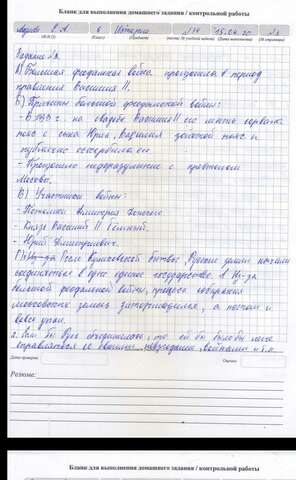 Бланк для выполнения домашнего задания / контрольной работы
6 История №14 15.04.20 №1
(Ф.И.О) (Класс) (Предмет) (номер № учебной недели) (Дата выполнения) (№ страницы)
Задание 1.
А) Большая феодальная война проходила в период
правления Василия II.
Б) Причины большой феодальной войны:
- В 1433 г. на свадьбе Василия II его мать сорвала
пояс с сына Юрия, Василия золотой пояс и
публично оскорбила его
- Произошло недоразумление с
Москвы.
В) Участники войны:
- Потомки Дмитрия Донского.
- Князь Василий II Тёмный.
- Юрий Дмитриевич.
Г) После Куликовской битвы, Русские земли начали
объединяться в одно единое государство. Из-за
большой феодальной войны, процесс собирания
московских земель затормозился, а потом и
вовсе упал.
2. Если бы Русь объединилась, то ей бы было бы легче
справляться со своими невзгодами, войнами и т.п.
Дата проверки Оценка
Резюме:
Бланк для выполнения домашнего задания / контрольной работы